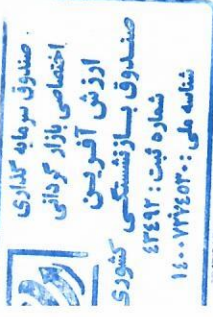 صندوق سرمایه گذاری
اختصاصی بازار گردانی
ارزش آفرین
صندوق بازنشستگی کشوری
شماره ثبت: ۴۳۴۹۲
شناسه ملی: ۱۴۰۰۷۷۲۴۵۳۰